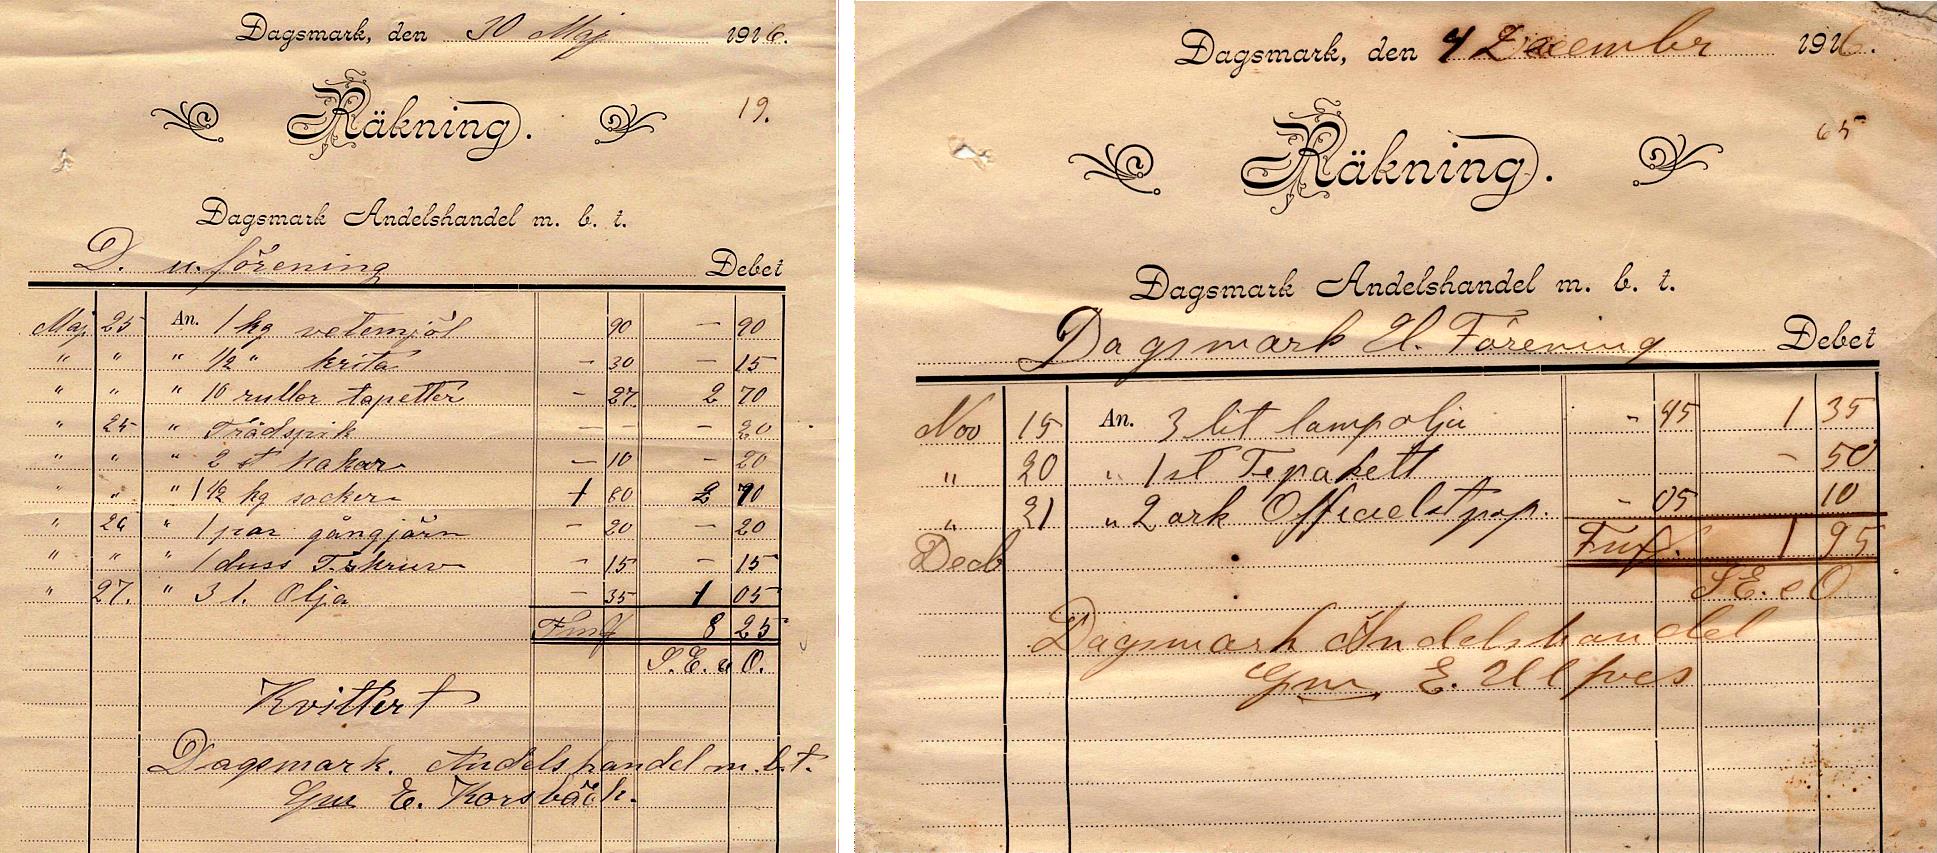 Dagsmark, den 30 Maj 1916.
19.
Räkning.
Dagsmark Andelshandel m. b. t.
D. u. förening Debet
Maj 25 An. 1 kg vetemjöl 90 — 90
" " " 1/2 " krita — 30 — 15
" " " 10 rullor tapetter — 27 2 70
" 25 " Trådspik — — — 20
" " " 2 st kakor — 10 — 20
" " " 1 1/2 kg socker 1 80 2 70
" 26 " 1 par gångjärn — 20 — 20
" " " 1 duss T. skruv — 15 — 15
" 27. " 3 l. Olja — 35 1 05
Fmk 8 25
S. E. u O.
Kvittert
Dagsmark. Andelshandel m. b. t.
Gm E. Korsbäck.
Dagsmark, den 4 December 1916.
65
Räkning.
Dagsmark Andelshandel m. b. t.
Dagsmark U. Förening Debet
Nov 15 An. 3 lit lampolja - 45 1 35
" 20 " 1 st Tepakett - 50
" 21 " 2 ark Officielstpap. - 05 10
Decb Fmk. 1 95
S. E. e O
Dagsmark Andelshandel
Gm E. Ulfves